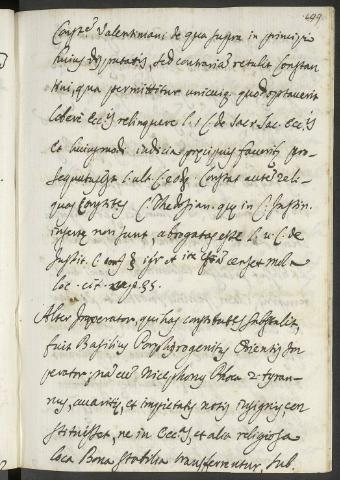 499
Const.e Valentiniani de qua supra in principio
huius disputatis, sed contraria retulit Constan
tini, qua permittitur unicuiq quod optaverit
libere Ecc.ijs relinquere l. 1 C. de Sacr. Sac. Ecc.ijs
et huiusmodi iudicia precipuis favorib pro-
sequutus est l. ult. C. eod. Constat autẽ reli-
quas Const.es C. Theodosian. quę in C. Justin.
insertę non sunt, abrogatas esse l. u. C. de
Justin. C. conf. § et ita censet
loc. cit. 55.
Alter Imperator, qui has constitut.es substulit,
fuit Basilius Porphyrogenitus Orientis Im
perator; nã cũ Nicephorus Phoca 2. tyran-
nus, avaritię, et impietatis notis insignis con
stituisset, ne in Ecc.as, et alia religiosa
loca Bona stabilia transferrentur, sub.